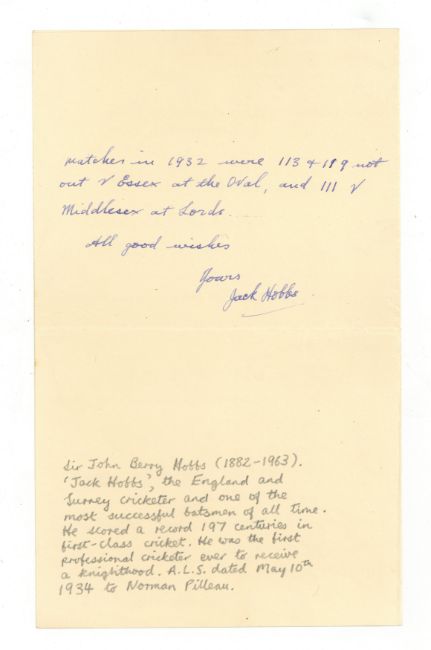 matches in 1932 were 113 & 119 not
out v Essex at the Oval, and 111 v
Middlesex at Lords.
All good wishes
Yours
Jack Hobbs.
Sir John Berry Hobbs (1882-1963).
'Jack Hobbs', the England and
Surrey cricketer and one of the
most successful batsmen of all time.
He scored a record 197 centuries in
first-class cricket. He was the first
professional cricketer ever to receive
a knighthood. A.L.S. dated May 10th
1934 to Norman Pilleau.